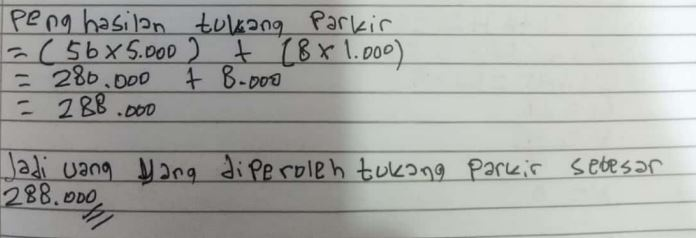 Penghasilan tukang Parkir
= (56 x 5.000) + (8 x 1.000)
= 280.000 + 8.000
= 288.000
Jadi uang yang diperoleh tukang parkir sebesar
288.000